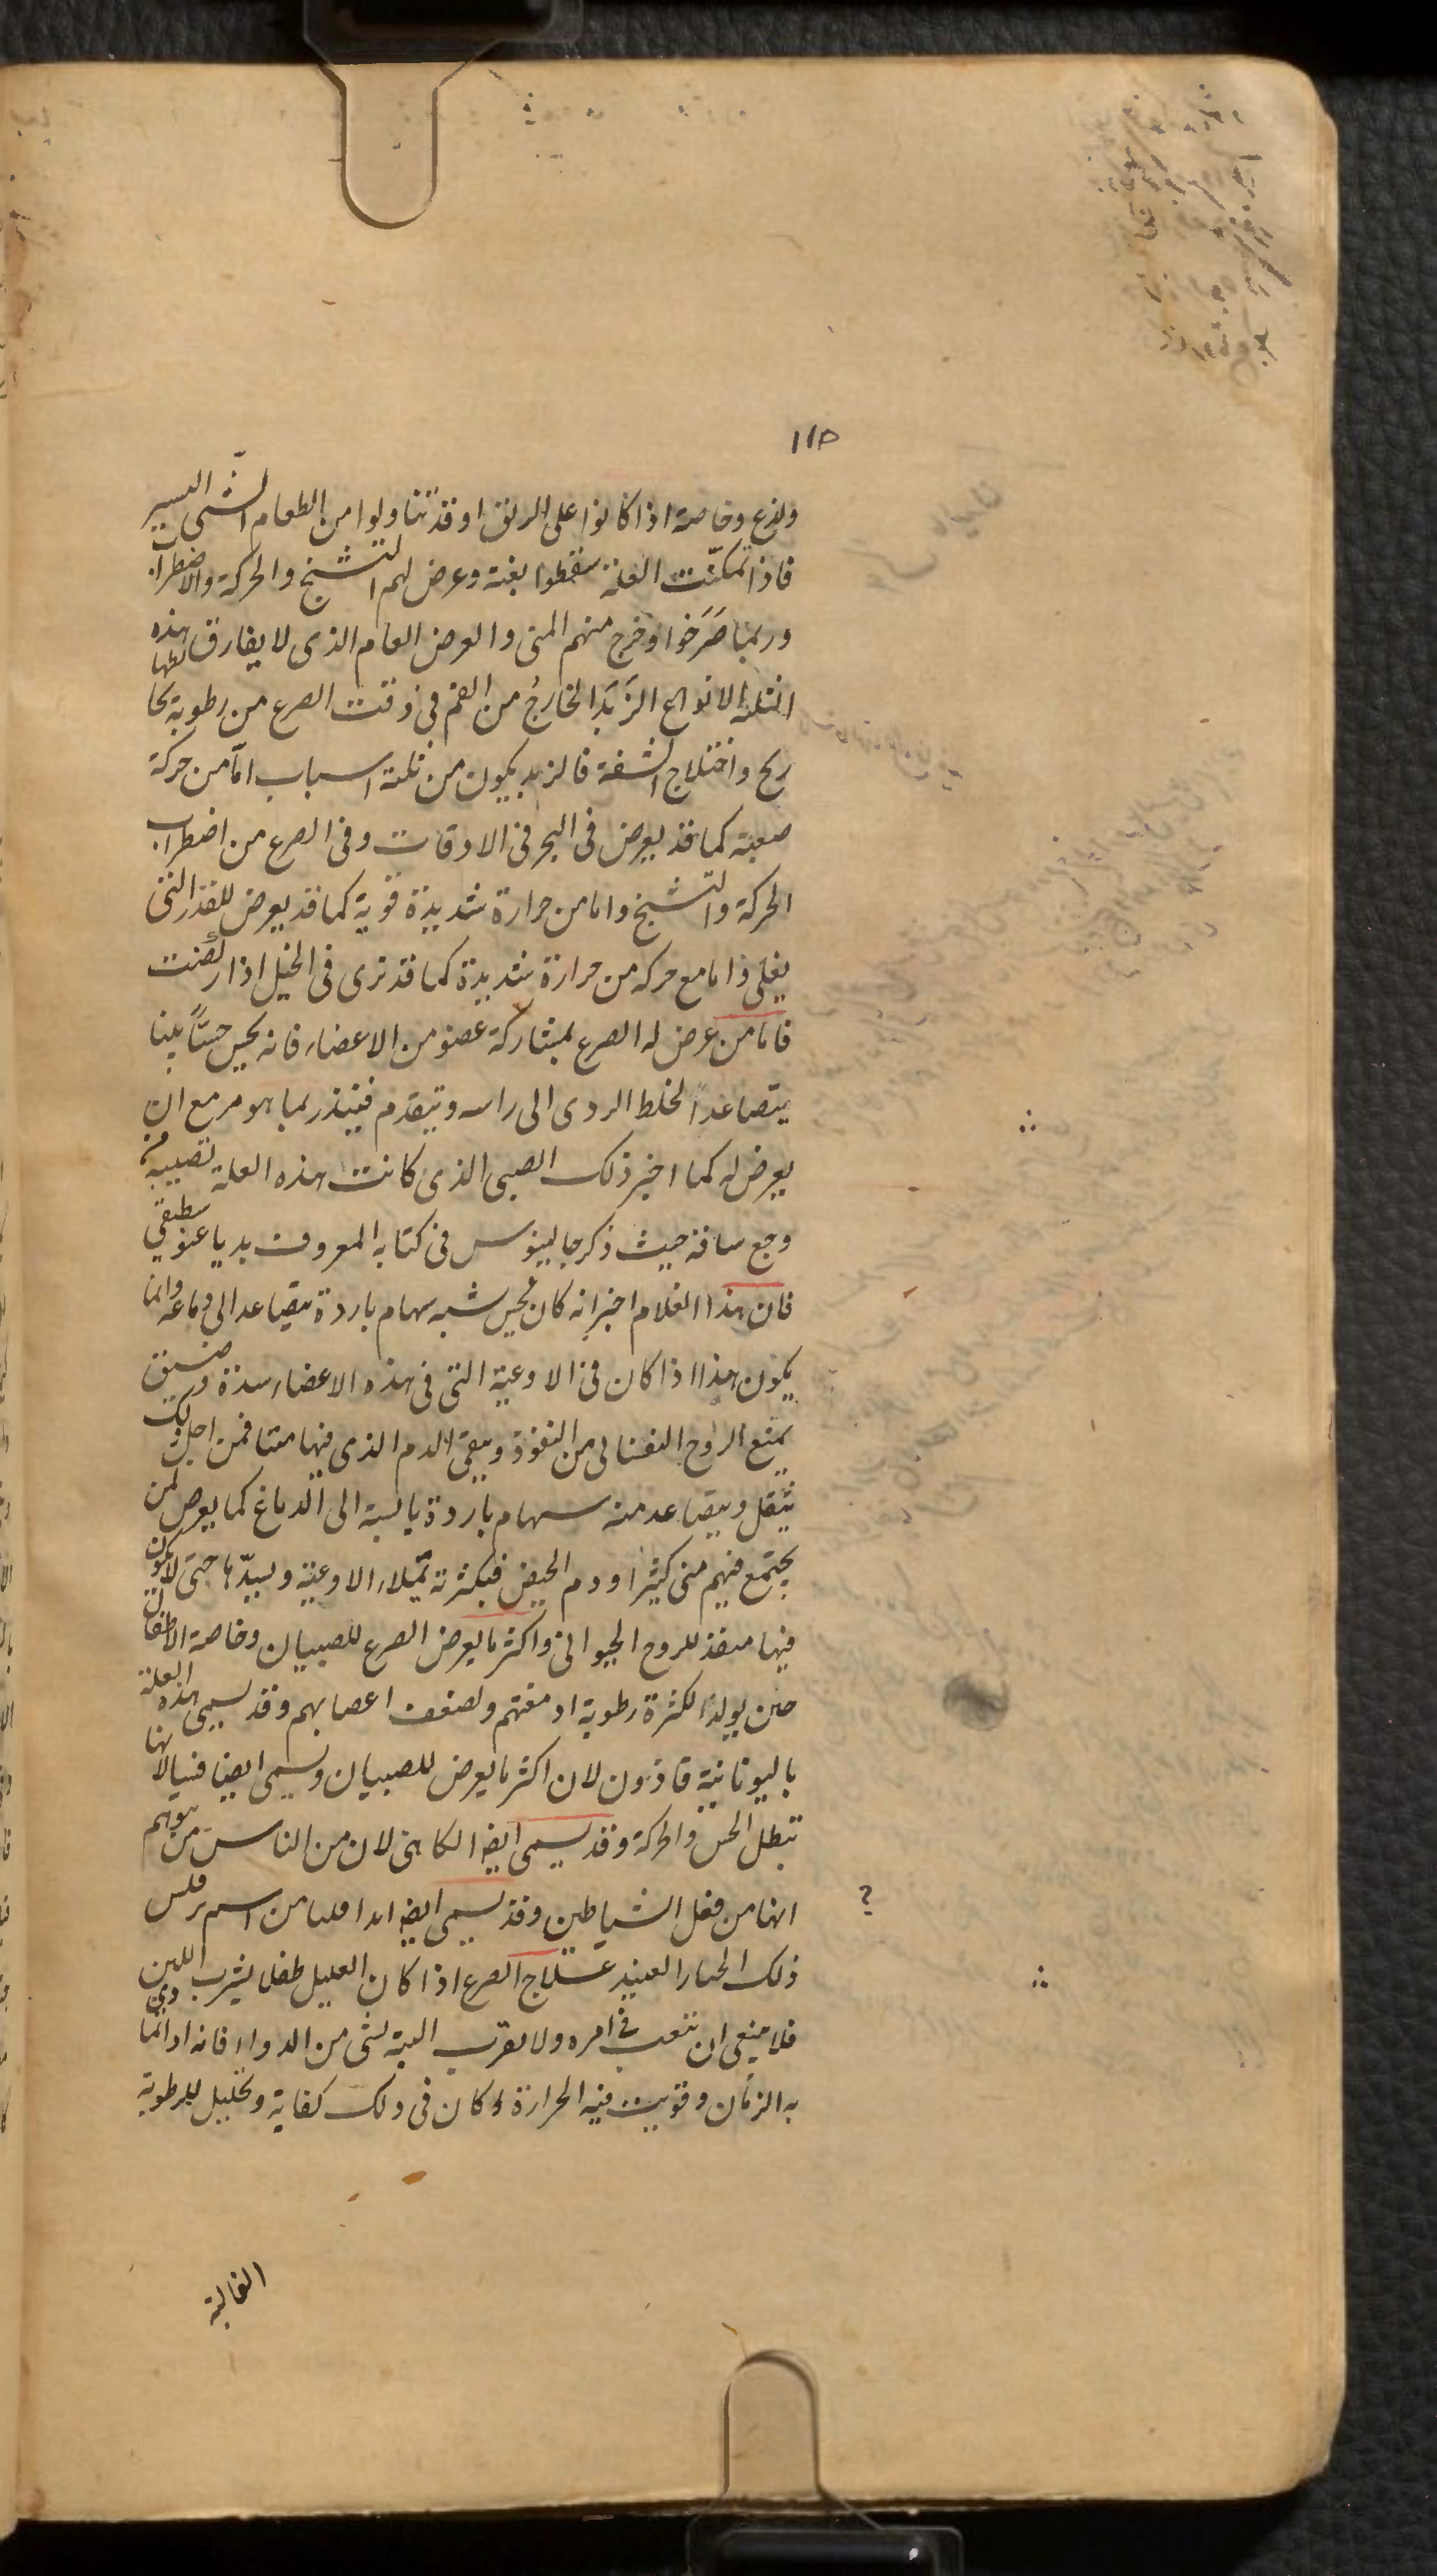 ١١٥
ولذع وخاصة اذا كانوا على الريق او قد تناولوا من الطعام الشىّ اليسير
فاذا تمكنّت العلة سقطوا بغتة وعرض لهم التشنج والحركة والاضطراب
وربما صَرَخوا وخرج منهم المنى والعرض العام الذى لا يفارق هذه
الثلثة الانواع الزَبَد الخارجُ من الفم فى وقت الصرع من رطوبة يخالطها
ريح واختلاج الشفة فالزبد يكون من ثلثة اسباب امّا من حركة
صعبة كما قد يعرض فى البحر فى الاوقات وفى الصرع من اضطراب
الحركة والتشنج واما من حرارة شديدة قوية كما قد يعرض للقدر التى
يغلى واما مع حركه من حرارة شديدة كما قد ترى فى الخيل اذا ركضت
فاما من عرض له الصرع بمشاركة عضو من الاعضاء فانه يحس حسّاً بينا
يتصاعد الخلط الردى الى راسه ويتقدم فينذر بما هو مزمع ان
يعرض له كما اخبر ذلك الصبى الذى كانت هذه العلة تصيبه من
وجع ساقه حيث ذكر جالينوس فى كتابه المعروف بدياغنوسطيقى
فان هذا الغلام اخبر انه كان يحس شبه سهام باردة يتصاعد الى دماغه وانما
يكون هذا اذا كان فى الاوعية التى فى هذه الاعضاء سدة وضيق
يمنع الروح النفسانى من النفوذ ويبقى الدم الذى فيها ميتا فمن اجل ذلك
يثقل ويتصاعد منه سهام باردة يابسة الى الدماغ كما يعرض لمن
يجتمع فيهم منى كثير او دم الحيض فبكثرته تمتلاء الاوعية ويسدّها حتى لا يكون
فيها منفذ للروح الحيوانى واكثر ما يعرض الصرع للصبيان وخاصة الاطفال
حين يولد لكثرة رطوبة ادمغتهم ولضعف اعصابهم وقد يسمى هذه العلة
باليونانية قاذون لان اكثر ما يعرض للصبيان ويسمى ايضا فنيا لانها
تبطل الحس والحركة وقد يسمى ايضا الكاهنى لان من الناس من يتوهم
انها من فعل الشياطين وقد يسمى ايضا من اسم
ذلك الجبار العنيد علاج الصرع اذا كان العليل طفلا يشرب اللبن
فلا ينبغى ان تتعب فى امره ولا تقرب البتة لشى من الدواء فانه اذا تمادى
به الزمان وقويت فيه الحرارة كان فى ذلك كفاية وتحليل للرطوبة
الغالبة
?